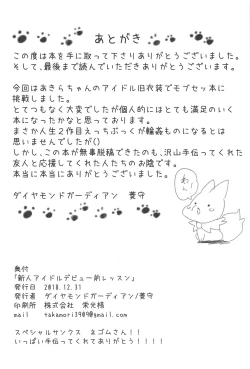 あとがき
この度は本を手に取って下さりありがとうございました。
そして、最後まで読んでいただきありがとうございます。
今回はあきらちゃんのアイドル旧衣装でモブセッ本に
挑戦しました。
とてつもなく大変でしたが個人的にはとても満足のいく
本になったかなと思っております。
まさか人生2作目えっちぶっくが輪姦ものになるとは
思いませんでしたが()
しかし、この本が無事脱稿できたのも、沢山手伝ってくれた
友人と応援してくれた人たちのお陰です。
本当に本当にありがとうございました。
ダイヤモンドガーディアン
わん!
奥付
「新人アイドルデビュー前レッスン」
発行日 2018.12.31
発行者 ダイヤモンドガーディアン/
印刷所 株式会社 栄光様
mail takamori3909@gmail.com
スペシャルサンクス ネゴムさん!!
いっぱい手伝ってくれてありがとう!!!!